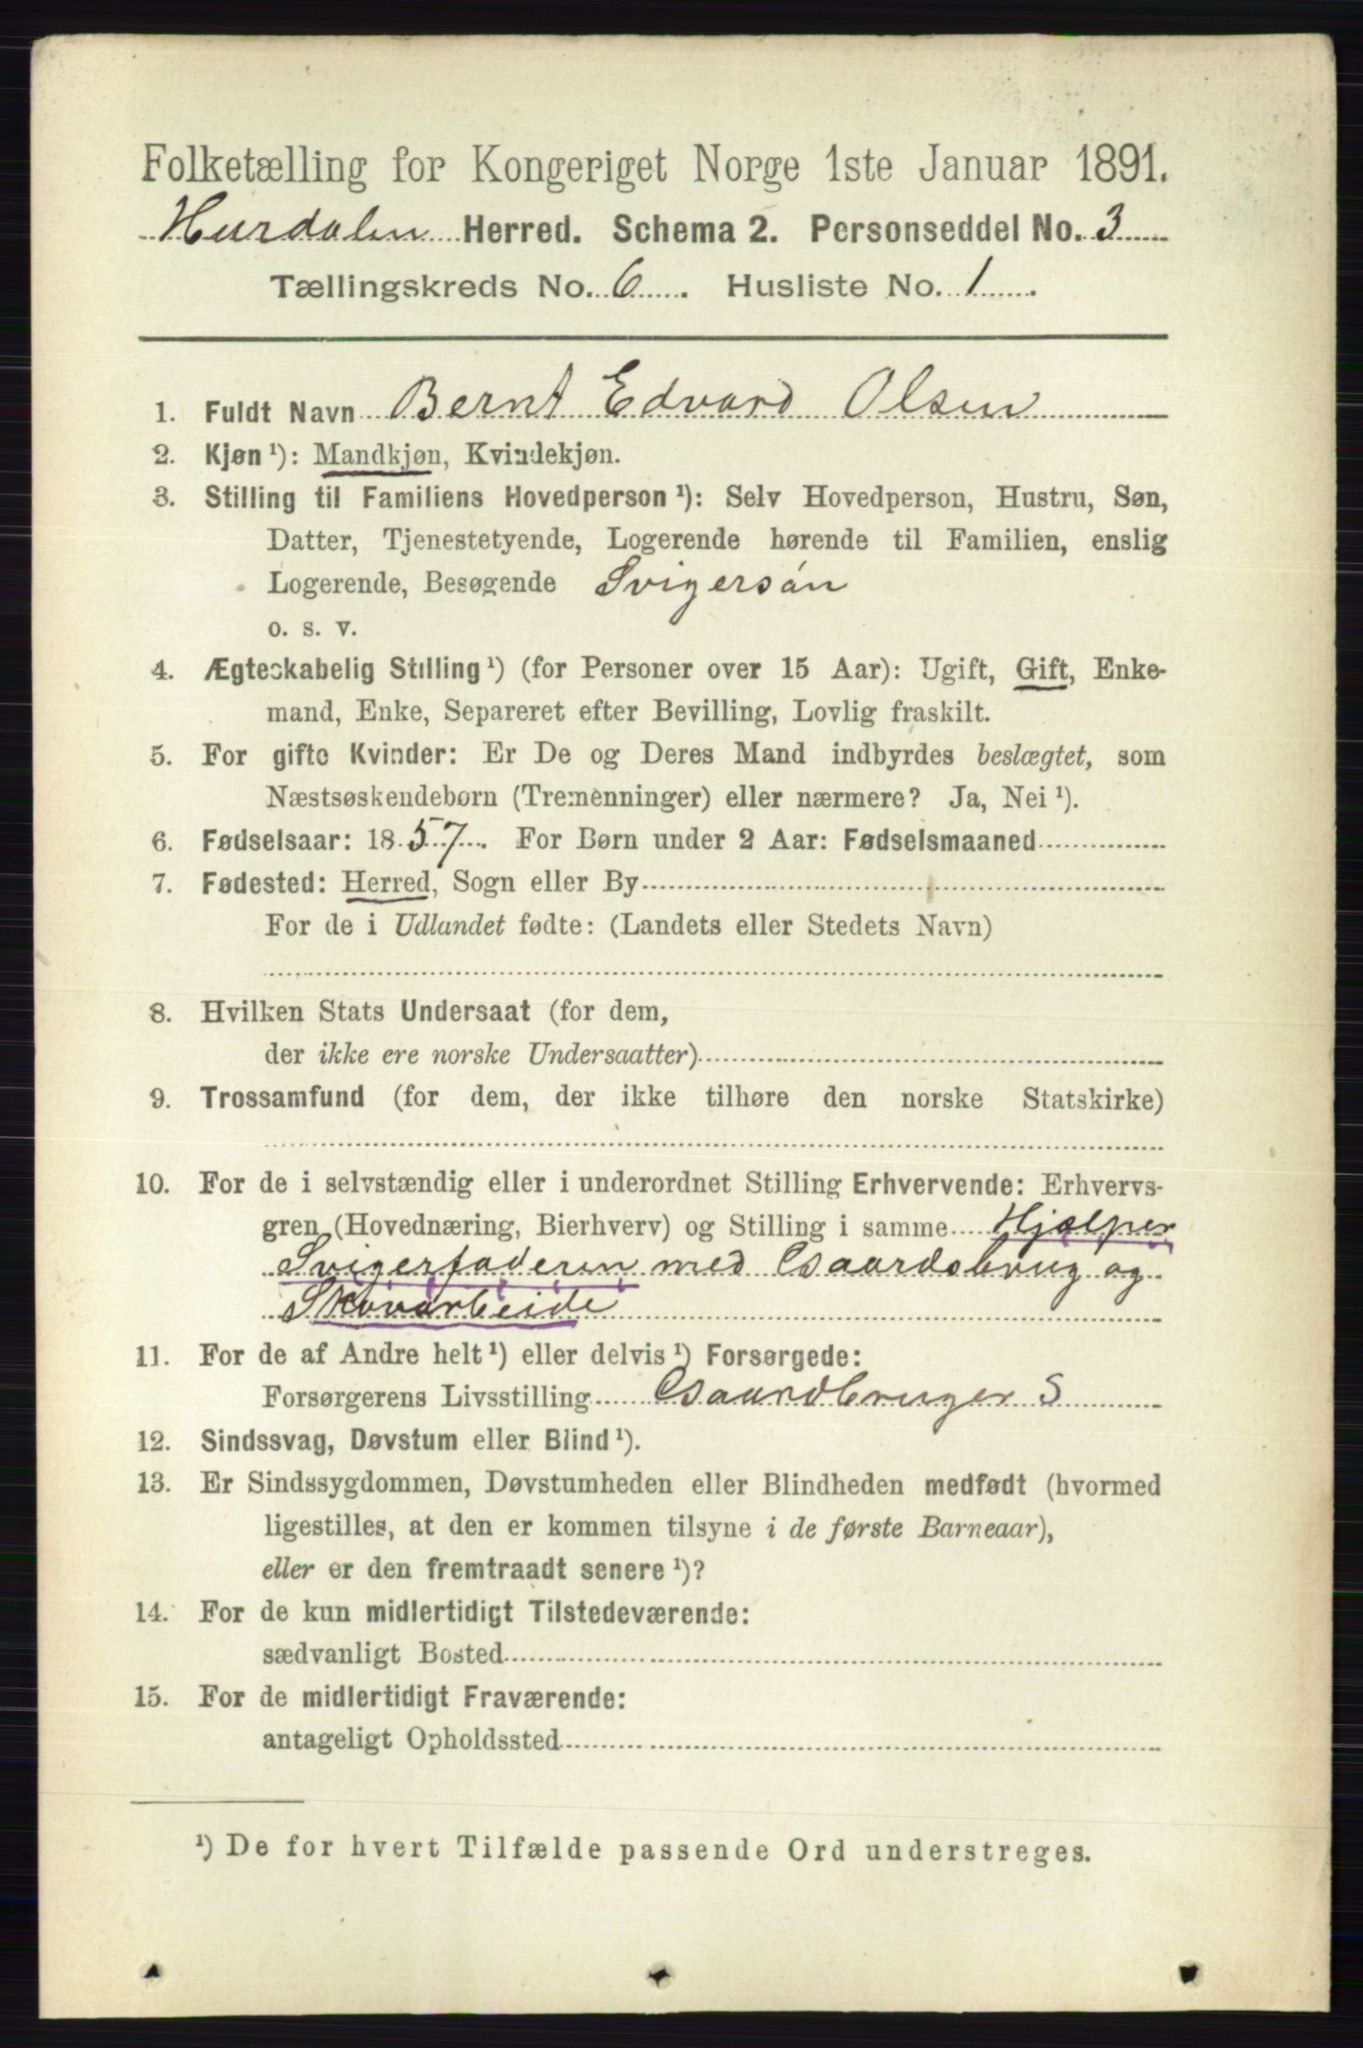 Folketælling for Kongeriget Norge 1ste Januar 1891.
Hurdalen Herred. Schema 2. Personseddel No. 3
Tællingskreds No. 6. Husliste No. 1.
1. Fuldt Navn Bernt Edvard Olsen
2. Kjøn ¹): Mandkjøn, Kvindekjøn.
3. Stilling til Familiens Hovedperson ¹): Selv Hovedperson, Hustru, Søn,
Datter, Tjenestetyende, Logerende hørende til Familien, enslig
Logerende, Besøgende Svigersön
o. s. v.
4. Ægteskabelig Stilling ¹) (for Personer over 15 Aar): Ugift, Gift, Enke-
mand, Enke, Separeret efter Bevilling, Lovlig fraskilt.
5. For gifte Kvinder: Er De og Deres Mand indbyrdes beslægtet, som
Næstsøskendebørn (Tremenninger) eller nærmere? Ja, Nei ¹).
6. Fødselsaar: 1857. For Børn under 2 Aar: Fødselsmaaned
7. Fødested: Herred, Sogn eller By
For de i Udlandet fødte: (Landets eller Stedets Navn)
8. Hvilken Stats Undersaat (for dem,
der ikke ere norske Undersaatter)
9. Trossamfund (for dem, der ikke tilhøre den norske Statskirke)
10. For de i selvstændig eller i underordnet Stilling Erhvervende: Erhvervs-
gren (Hovednæring, Bierhverv) og Stilling i samme Hjælper
Svigerfaderen med Gaardsbrug og
Skovarbeide
11. For de af Andre helt ¹) eller delvis ¹) Forsørgede:
Forsørgerens Livsstilling Gaardbruger S
12. Sindssvag, Døvstum eller Blind ¹).
13. Er Sindssygdommen, Døvstumheden eller Blindheden medfødt (hvormed
ligestilles, at den er kommen tilsyne i de første Barneaar),
eller er den fremtraadt senere ¹)?
14. For de kun midlertidigt Tilstedeværende:
sædvanligt Bosted
15. For de midlertidigt Fraværende:
antageligt Opholdssted
¹) De for hvert Tilfælde passende Ord understreges.